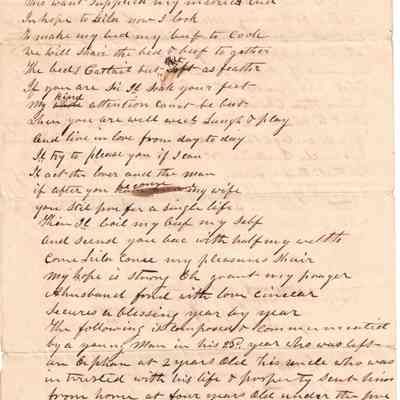 This want supplied my
In hope to Leila now I look
To make my bed my beef to Cook
We will share the bed & beef to gether
The beds Cattail but soft as feather
If you are sic Il soak your feet
My kind attention cant be beat
When you are well weel Laugh & play
And live in love from day to day
Il try to please you if I can
Il act the lover and the man
if after you become my wife
you stil prefer a single life
Then Il boil my beef my self
And send you bac with half my welth
Come Leila Come my pleasures shair
My hope is strong Oh grant my prayer
A husband fond with love cincear
Secures a blessing year by year
The following is composed & communicated
by a young Man in his 25th year who was left
an Orphan at 2 years Old his uncle who was
intrusted with his life & property sent him
from home at four years Old under the